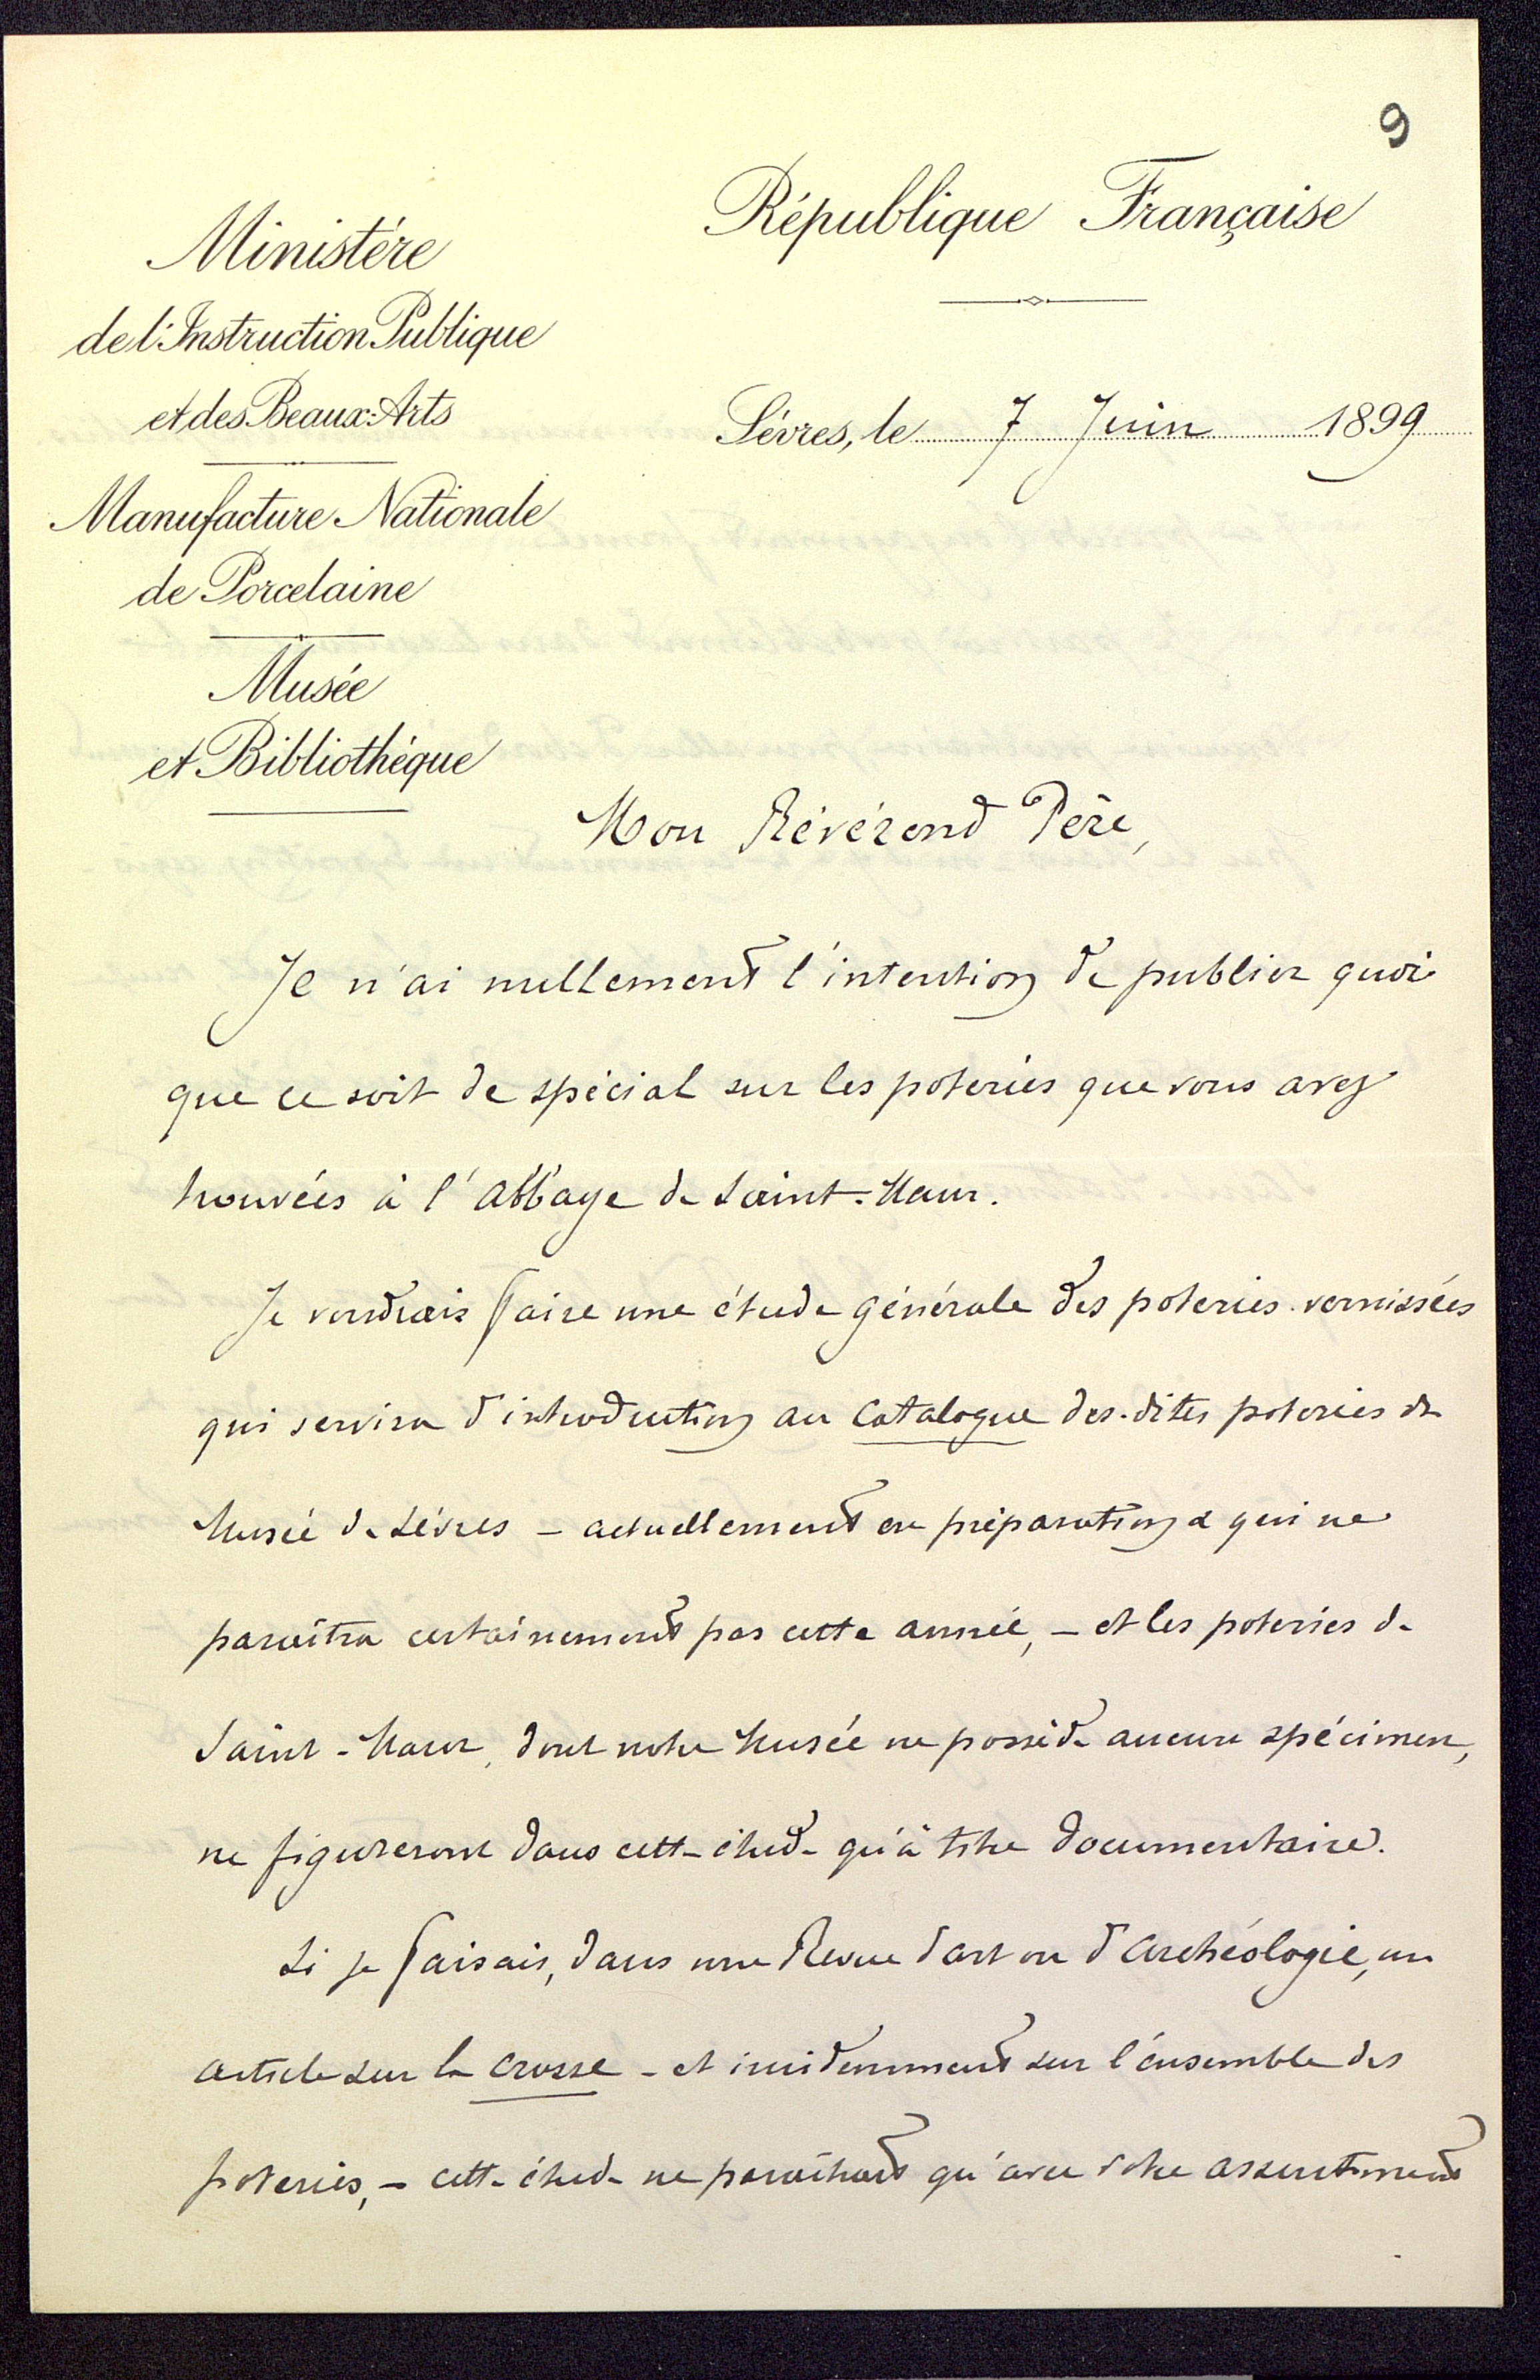 9
République Française
Ministère
de l'Instruction Publique
et des Beaux-Arts
Sèvres, le 7 Juin 1899
Manufacture Nationale
de Porcelaine
Musée
et Bibliothèque
Mon Révérend Père,
Je n'ai nullement l'intention de publier quoi
que ce soit de spécial sur les poteries que vous avez
trouvées à l'abbaye de Saint-Maur.
Je voudrais faire une étude générale des poteries vernissées
qui servira d'introduction au catalogue des-dites poteries du
Musée de Sèvres - actuellement en préparation & qui ne
paraîtra certainement pas cette année, - et les poteries de
Saint-Maur, dont notre Musée ne possède aucun spécimen,
ne figureront dans cette étude qu'à titre documentaire.
Si je faisais, dans une Revue d'art ou d'archéologie, un
article sur la crosse - et incidemment sur l'ensemble des
poteries, - cette étude ne paraîtrait qu'avec votre assentiment